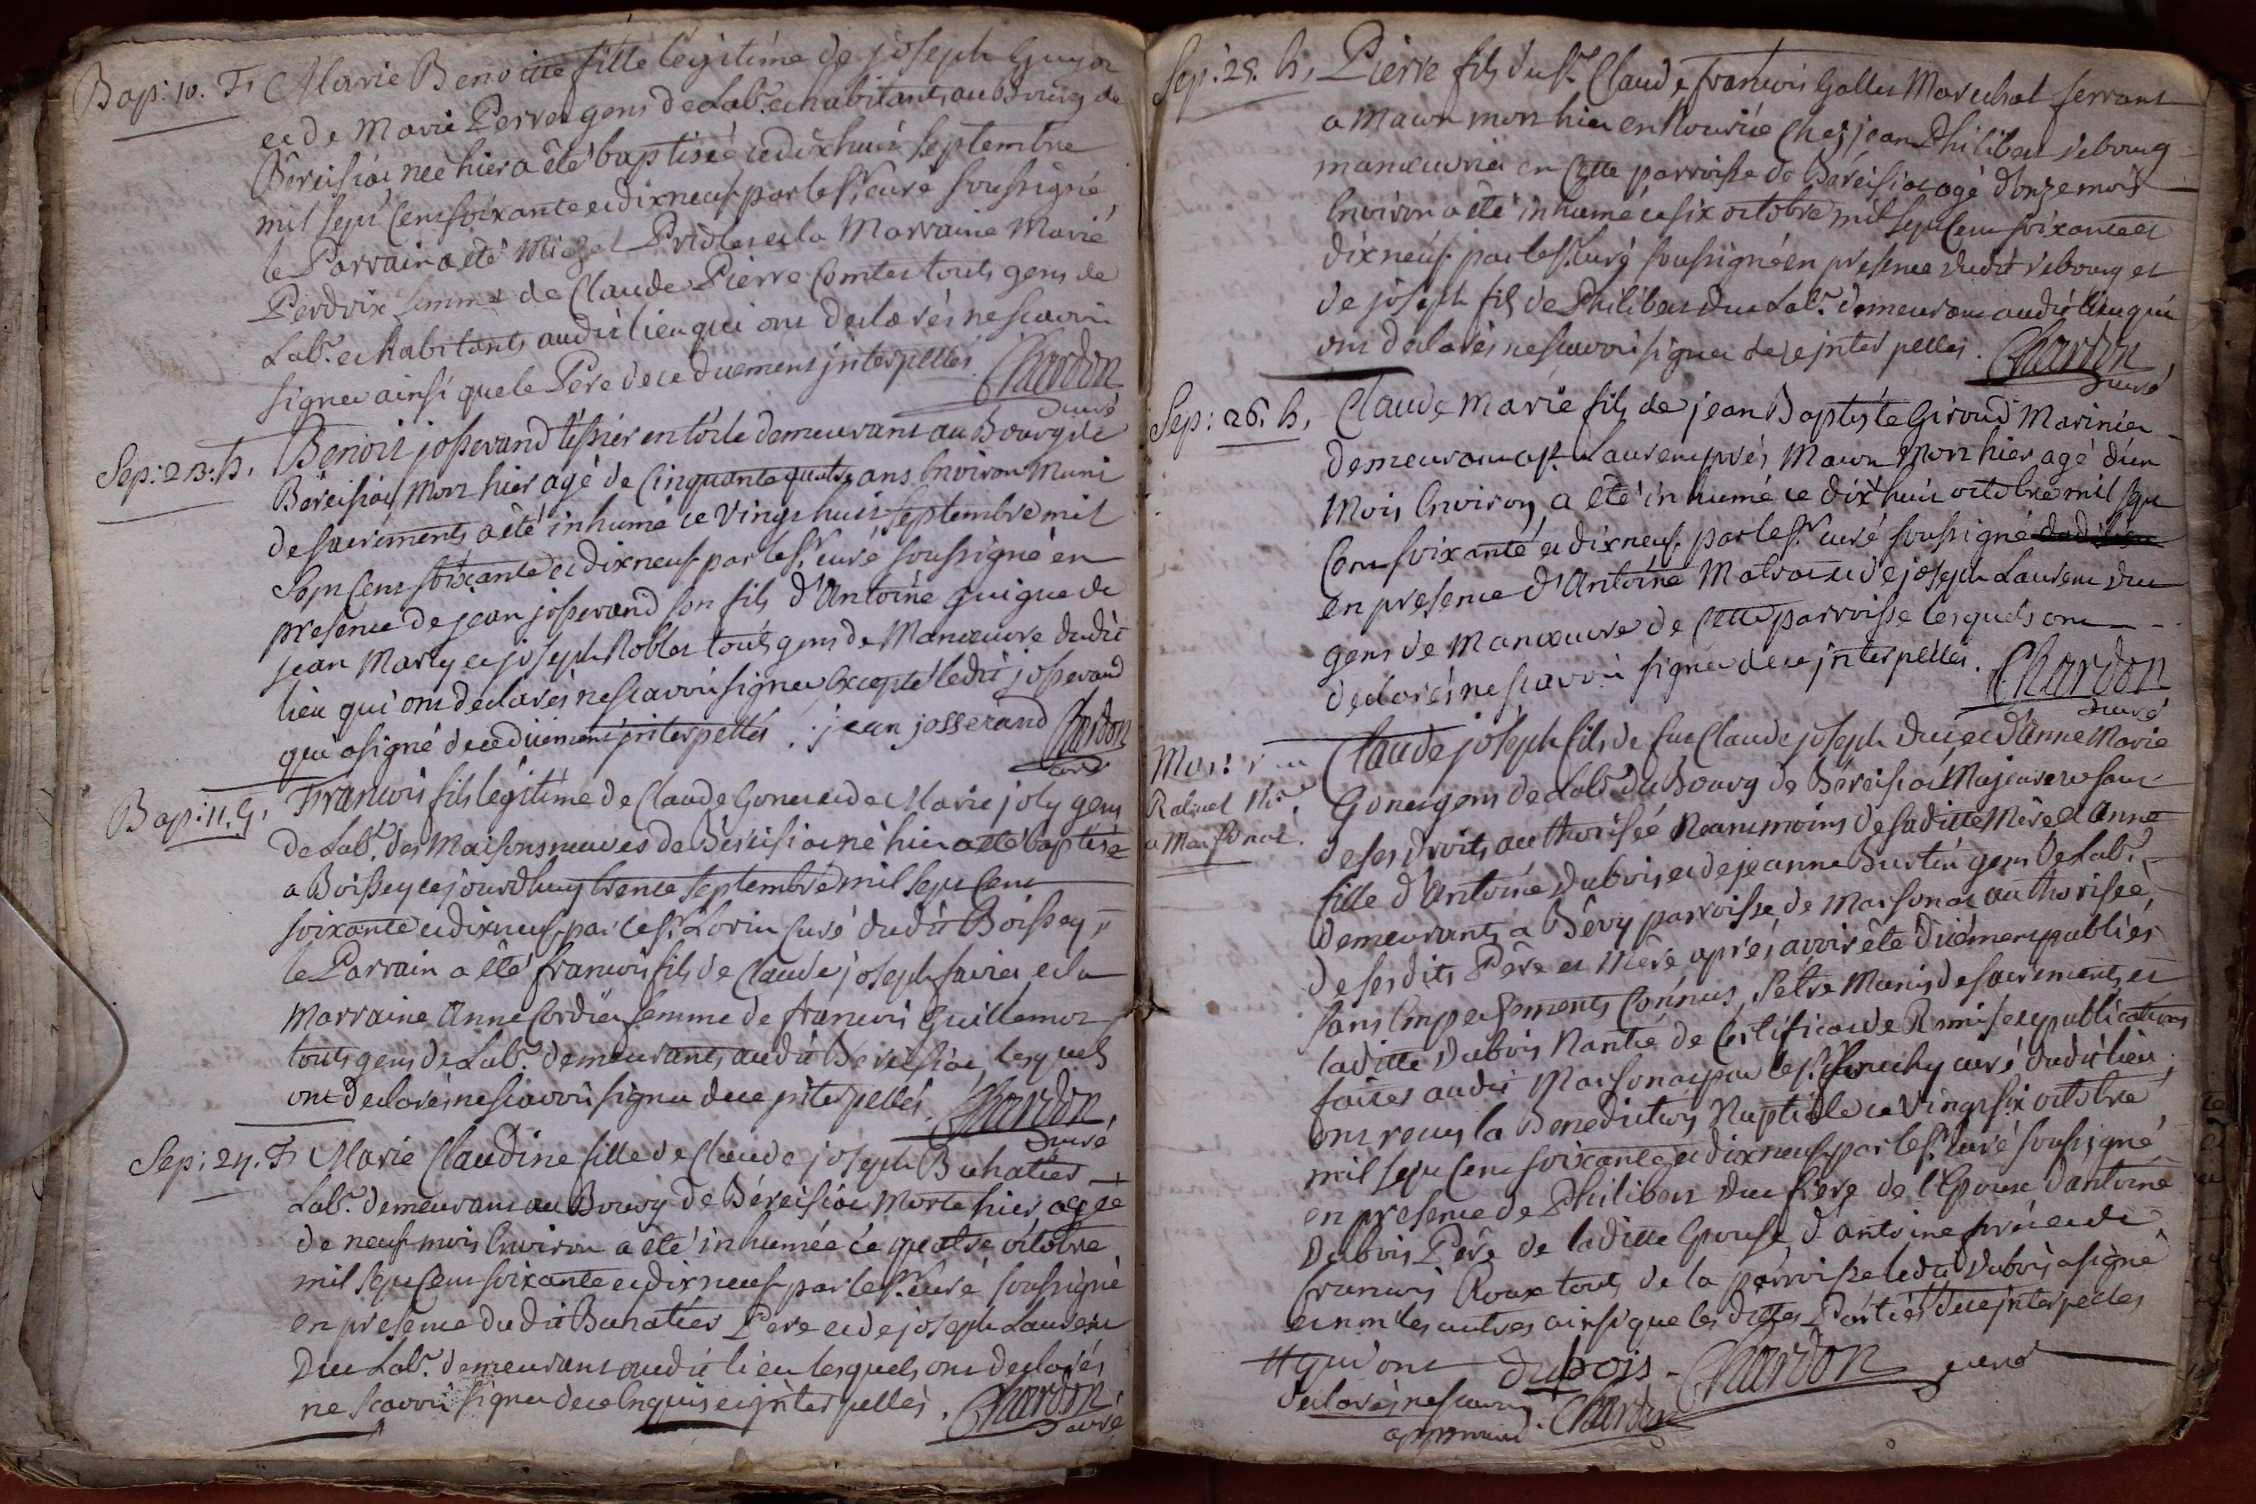 Bap: 10. F.
Marie Benoitte fille légitime de joseph Guyon
et de Marie Perret gens de Lab.r et habitants au Bourg de
Béreisiat née hier a été baptisée ce dixhuit Septembre
mil sept Cent soixante et dixneuf par le S.r curé soussigné
le Parrain a été Michel et la Marraine Marie
Perdrix femme de Claude Pierre Comtet touts gens de
Lab.r et habitants audit lieu qui ont declarés ne scavoir
signer ainsi que le Père de ce duement interpellés. Chardon
curé
Sep: 23. h.
Benoit josserand tissier en toile demeurant au Bourg de
Béreisiat mort hier agé de Cinquante quatre ans Environ muni
de sacrements a été inhumé ce vingt huit septembre mil
Sept Cent soixante et dixneuf par le S.r curé soussigné en
presence de jean josserand son fils d'Antoine guigue de
jean Marly et joseph Roblet touts gens de Manœuvre dudit
lieu qui ont declarés ne scavoir signer Excepté ledit josserand
qui a signé de ce duement interpellés. jean josserand Chardon
curé
Bap: 11. G.
Francois fils légitime de Claude Gonet et de Marie joly gens
de Lab.r des Maisons neuves de Béreisiat né hier a été baptisé
a Boissey ce jourdhuy trente septembre mil sept Cent
soixante et dixneuf par le S.r Lorin Curé dudit Boissey
le Parrain a été francois fils de Claude joseph favier et la
Marraine Anne Cordier femme de francois Guillemot
touts gens de Lab.r demeurants audit Béreisiat lesquels
ont declarés ne scavoir signer de ce interpellés. Chardon
curé
Sep: 24. F.
Marie Claudine fille de Claude joseph Buhatier
Lab.r demeurant au Bourg de Béreisiat Morte hier agée
de neuf mois Environ a été inhumée ce quatre octobre
mil sept Cent soixante et dixneuf par le S.r curé soussigné
en presence dudit Buhatier Père et de joseph Laurent
Duc Lab.r demeurant audit lieu lesquels ont declarés
ne scavoir signer de ce Enquis et interpellés. Chardon
curé
Sep: 25. h.
Pierre fils du S.r Claude francois Gallet Marechal ferrant
a Macon mort hier en Nourrice chez jean Philibert rebourg
manœuvrier en Cette parroisse de Béreisiat agé d'onze mois
Environ a été inhumé ce six octobre mil sept Cent soixante et
dixneuf par le S.r curé soussigné en presence dudit rebourg et
de joseph fils de Philibert Duc Lab.r demeurant audit lieu qui
ont declarés ne scavoir signer de ce interpellés. Chardon
curé
Sep: 26. h.
Claude Marie fils de jean Baptiste Giroud Marinier
demeurant a S.t Laurent près Macon Mort hier agé d'un
Mois Environ a été inhumé ce dix huit octobre mil sept
Cent soixante et dixneuf par le S.r curé soussigné
en presence d'Antoine Matrat et de joseph Laurent Duc
gens de Manœuvre de Cette parroisse lesquels ont
declarés ne scavoir signer de ce interpellés. Chardon
curé
a Marsonat.
Claude joseph fils de feu Claude joseph Duc et d'Anne Marie
Gonet gens de Lab.r du Bourg de Béreisiat Majeur et usant
de ses droits authorisé Neanmoins de sa ditte Mère et Anne
fille d'Antoine Dubois et de jeanne Burtin gens de Lab.r
demeurants a Bévy parroisse de Marsonat authorisée
de ses dits Père et Mère après avoir été duement publiés
sans Empechements Connus s'etre Munis de sacrements et
laditte Dubois Nantie de Certificat de Remise et publications
faites audit Marsonat par le S.r curé dudit lieu
ont recus la Benediction Nuptiale ce vingt six octobre
mil sept Cent soixante et dixneuf par le S.r curé soussigné
en presence de Philibert Duc frère de l'Epoux d'antoine
Dubois Père de laditte Epouse d'antoine et de
francois Roux touts de la parroisse ledit Dubois a signé
et non les autres ainsi que les dittes Parties # de ce interpellés
# qui ont dubois - Chardon curé
declarés ne scavoir
approuvé. Chardon